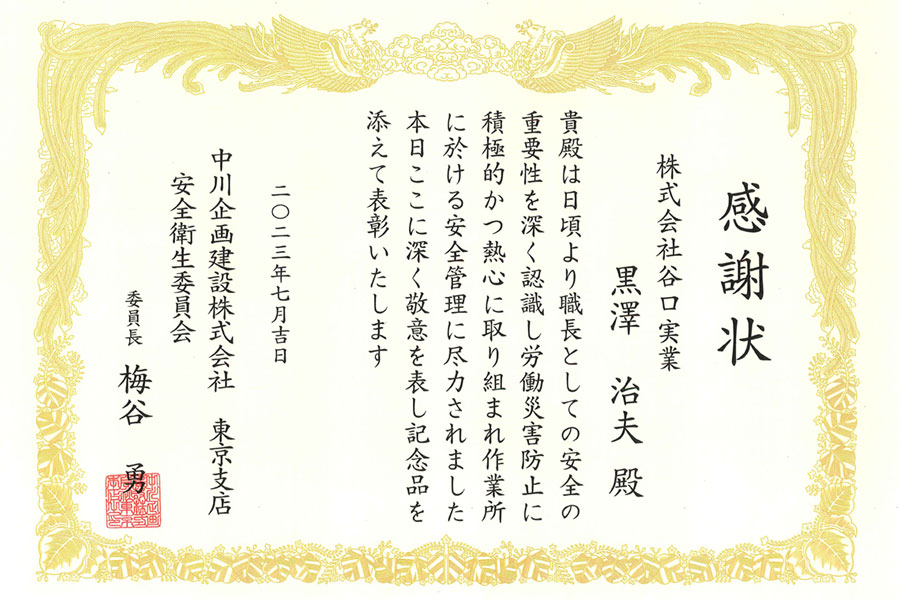 感謝状
株式会社谷口実業
黒澤 治夫 殿
貴殿は日頃より職長としての安全の
重要性を深く認識し労働災害防止に
積極的かつ熱心に取り組まれ作業所
に於ける安全管理に尽力されました
本日ここに深く敬意を表し記念品を
添えて表彰いたします
二〇二三年七月吉日
中川企画建設株式会社 東京支店
安全衛生委員会
委員長 梅谷 勇